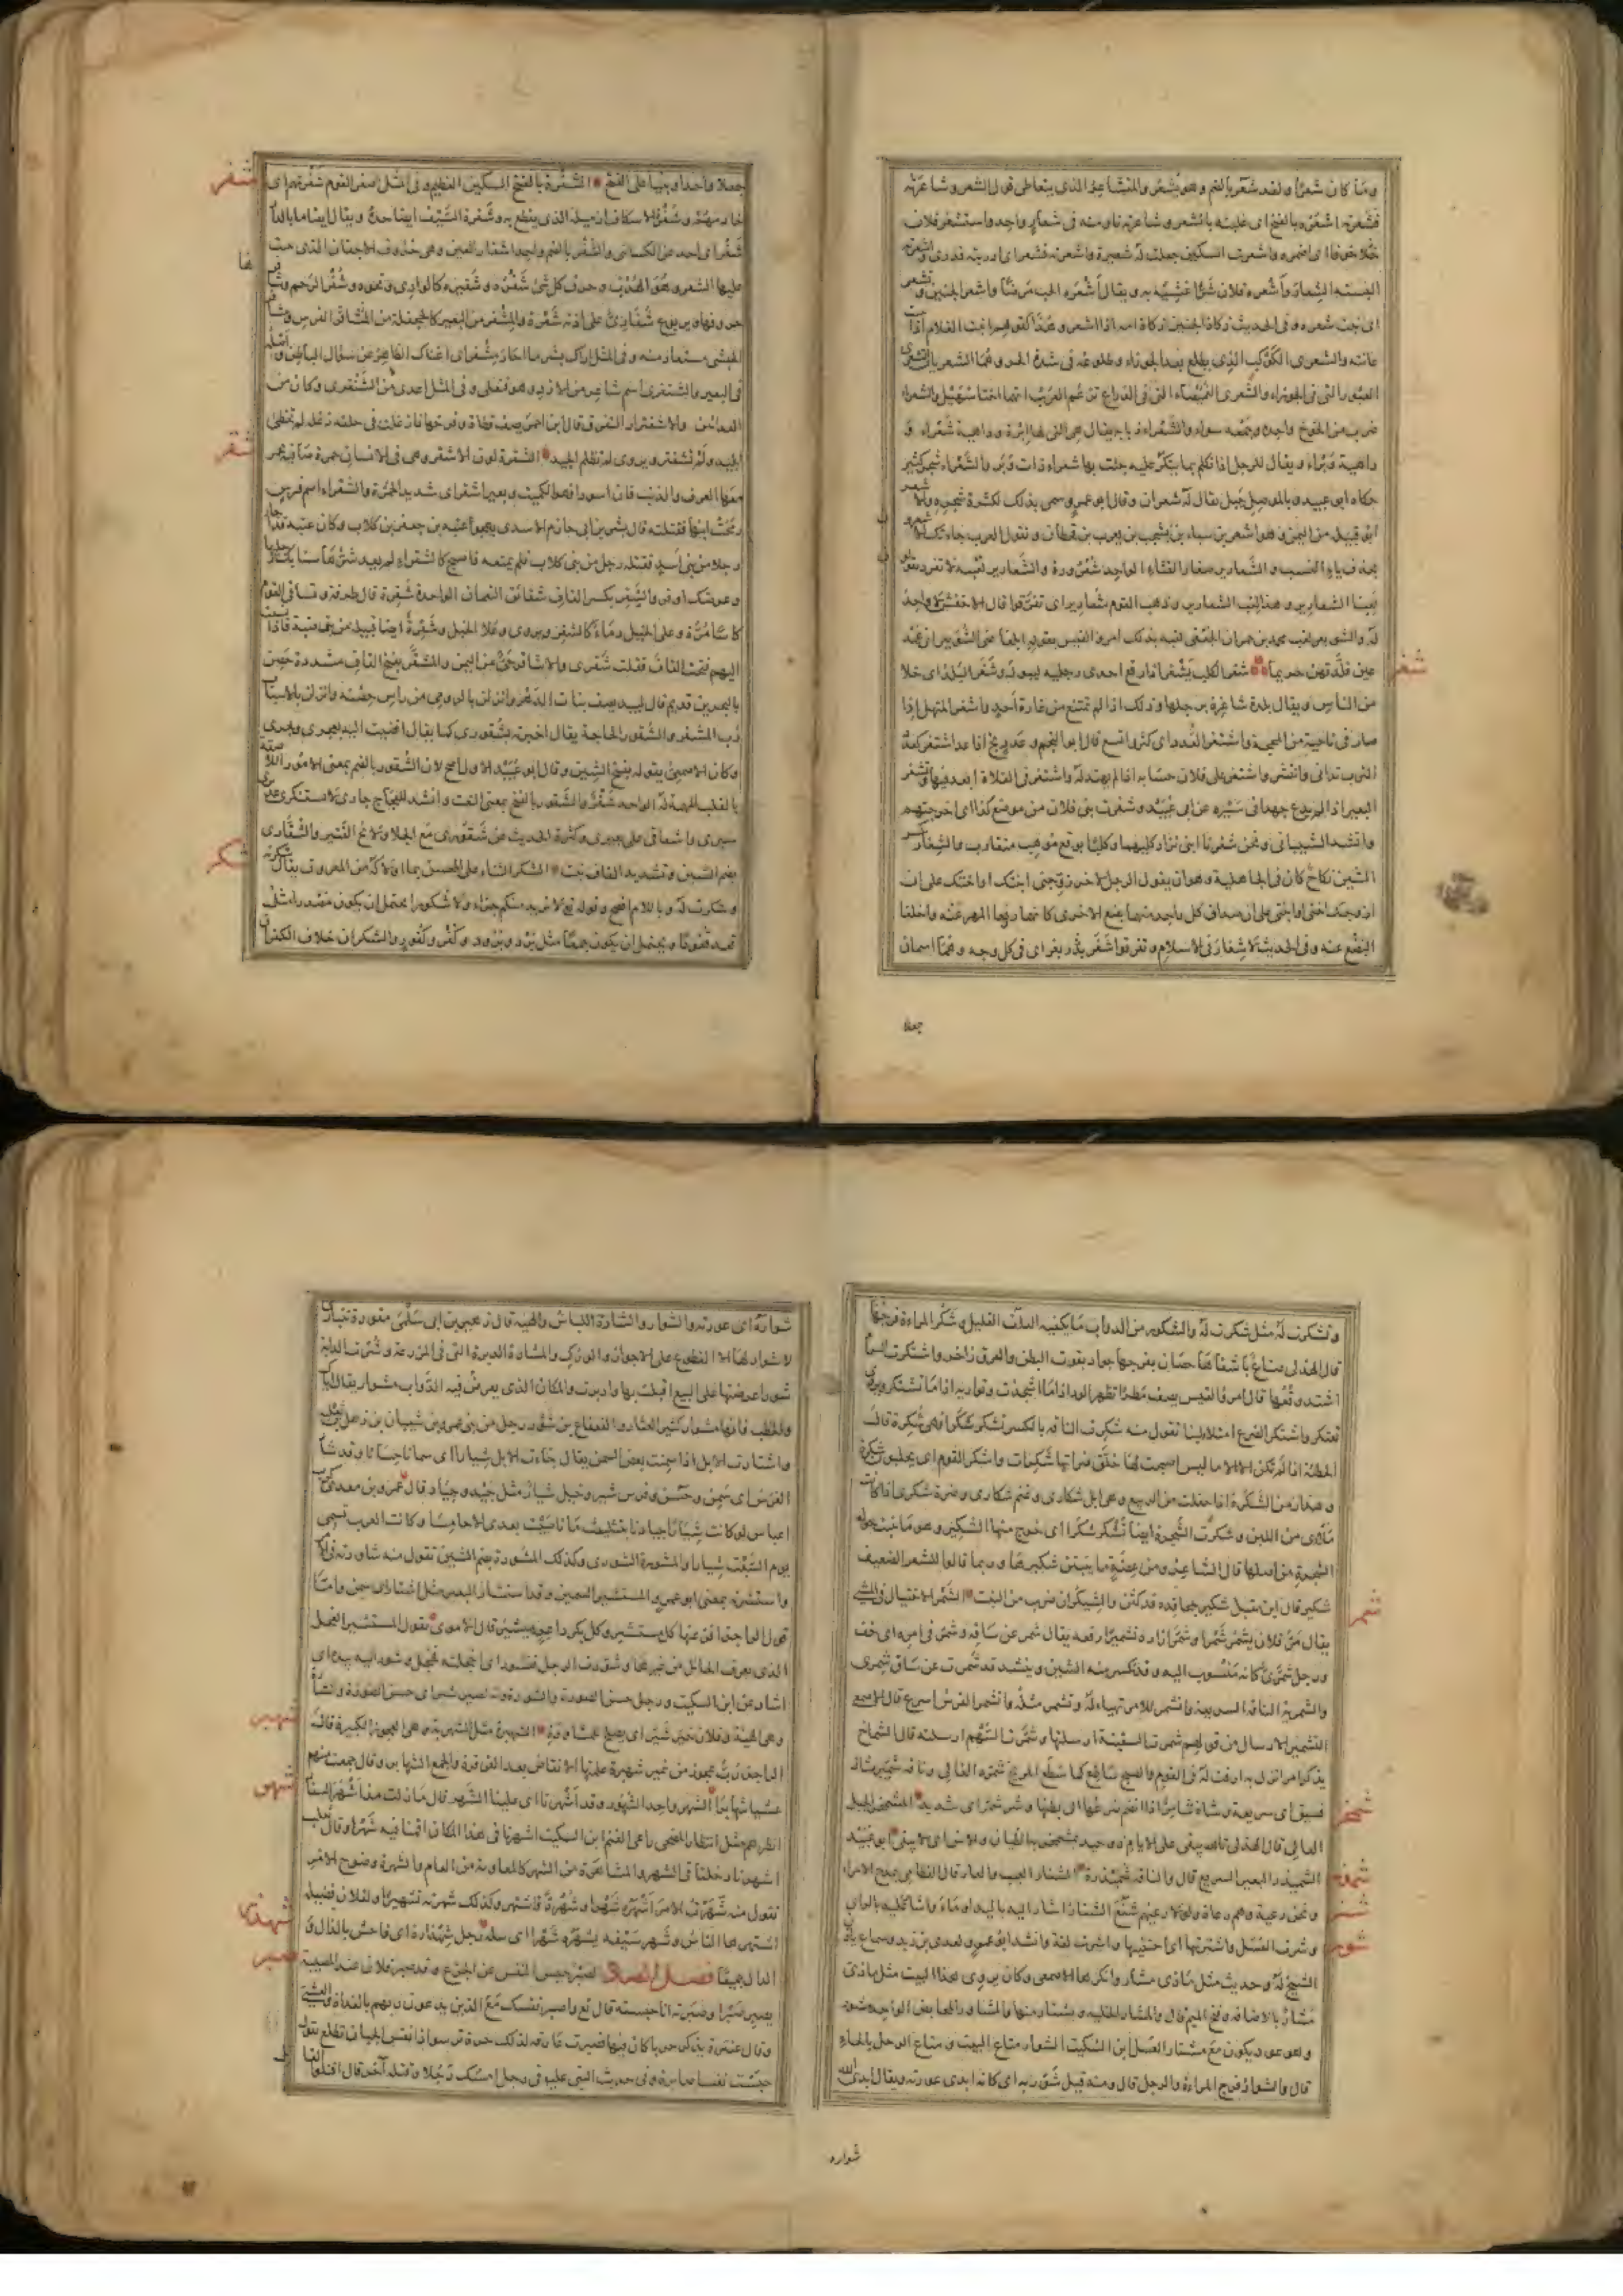 وما كان شعرا ولقد شعر بالضم وهو يشعر والمتشاعر الذى يتعاطى قول الشعر وشاعرته
فشعرته اشعره بالفتح اى غلبته بالشعر وشاعرته ناومته فى شعار واحد واستشعر فلان
خوفا اى اضمره واشعرت السكين جعلت له شعيرة واشعرته فشعر اى ادريته فدرى
البسته الشعار واشعره فلان شرا غشيه به ويقال اشعره الحب مرضا واشعر الجنين وتشعر
اى نبت شعره وفى الحديث زكاة الجنين زكاة امه اذا اشعر وهذا كقولهم انبت الغلام اذا
عانته والشعرى الكوكب الذى يطلع بعد الجوزاء وطلوعه فى شدة الحر وهما الشعريان
العبور التى فى الجوزاء والشعرى الغميصاء التى فى الذراع تزعم العرب انهما اختا سهيل والشعراء
ضرب من الخوخ واحده وجمعه سواء والشعراء ذباب يقال هى التى لها ابرة وداهية شعراء و
داهية وبراء ويقال للرجل اذا تكلم بما ينكر عليه جئت بها شعراء ذات وبر والشعراء شجر كثير
حكاه ابو عبيد وبالموصل جبل يقال له شعران وقال ابو عمرو سمى بذلك لكثرة شجره
ابو قبيلة من اليمن وهو اشعر بن سباء بن يشجب بن يعرب بن قحطان وتقول العرب جاءتك
بحذف ياء النسب والشعارير صغار القثاء الواحد شعرورة والشعارير لعبة لا تفرد
لعبنا الشعارير وهذا لعب الشعارير وذهب القوم شعارير اى تفرقوا قال الاخفش لا واحد
له والشويعر لقب محمد بن حمران الجعفى لقبه بذلك امرو القيس بقوله ابلغا عنى الشويعر انى
عين قلدتهن حريما شغر الكلب يشغر اذا رفع احدى رجليه ليبول وشغر البلد اى خلا
من الناس ويقال بلدة شاغرة برجلها وذلك اذا لم تمتنع من غارة احد واشغر المنهل اذا
صار فى ناحية من المحجة واشتغر العدد اى كثر واتسع قال ابو النجم وعدد بخ اذا عد اشتغر
التراب تدانى وانتشر واشتغر على فلان حسابه اذا لم يهتد له واشتغر فى الفلاة ابعد فيها
البعير اذا لم يدع جهدا فى سيره عن ابى عبيد وشغرت بنى فلان من موضع كذا اى اخرجتهم
وانشد الشيبانى ونحن شغرنا ابنى نزار كليهما وكلبا بوقع مرهب متقارب والشغار
الشين نكاح كان فى الجاهلية وهو ان يقول الرجل لاخر زوجنى ابنتك او اختك على ان
ازوجك اختى او ابنتى على ان صداق كل واحد منهما بضع الاخرى كانهما رفعا المهر عنه واخليا
البضع عنه وفى الحديث لا شغار فى الاسلام وتفرقوا شغر بغر اى فى كل وجه وهما اسمان
جعلا
شغر
جعلا واحدا وبنيا على الفتح الشفرة بالفتح السكين العظيم وفى المثل اصغر القوم شفرتهم اى
خادمهم وشفرة الاسكاف ازميله الذى يقطع به وشفرة السيف ايضا حده ويقال ايضا ما بالدار
شفر اى احد عن الكسائى والشفر بالضم واحد اشفار العين وهى حروف الاجفان التى ينبت
عليها الشعر وهو الهدب وحرف كل شئ شفره وشفيره كالوادى ونحوه وشفر الرحم
حروفها ويربوع شفارى على اذنه شعرة والمشفر من البعير كالجحفلة من الفرس
الحبشى مستعار منه وفى المثل اراك بشر ما احار مشفر اى اغناك الظاهر عن سؤال الباطن
فى البعير والشنفرى اسم شاعر من الازد وهو فنعلى وفى المثل اعدى من الشنفرى وكان من
العدائين والاشفترار التفرق قال ابن احمر يصف قطاة وفرخها
الجيد ولم تشفتر ويروى لم تظلم الجيد الشقرة لون الاشقر وهى فى الانسان حمرة صافية
معها العرف والذنب فان اسودا فهو الكميت وبعير اشقر اى شديد الحمرة والشقراء اسم فرس
رمحت ابنها فقتلته قال بشر بن ابى حازم الاسدى يهجو عتبة بن جعفر بن كلاب وكان عتبة قد
رجلا من بنى اسد فقتله رجل من بنى كلاب فلم يمنعه فاصبح كالشقراء لم يعد شرها سنابك
وعرضك اوفر والشقر بكسر القاف شقائق النعمان الواحدة شقرة قال طرفة وتساقى القوم
كاسا مرة وعلى الخيل دماء كالشقر ويروى وعلا الخيل وشقرة ايضا قبيلة من بنى ضبة فاذا
اليهم فتحت القاف فقلت شقرى والاشاقر حى من اليمن والمشقر بفتح القاف مشددة حصن
بالبحرين قديم قال لبيد يصف بنات الدهر وانزلن بالدومى من راس حصنه وانزلن بالاسباب
رب المشقر والشقور الحاجة يقال اخبرته بشقورى كما يقال افضيت اليه بعجرى وبجرى
وكان الاصمعى يقوله بفتح الشين وقال ابو عبيد الاول اصح لان الشقور بالضم بمعنى الامور
بالقلب المهمة له الواحد شقر والشقور بالفتح بمعنى النعت وانشد للعجاج جارى لا تستنكرى
سيرى واشفاقى على بعيرى وكثرة الحديث عن شقورى مع الجلا ولائح القتير والشقارى
بضم الشين وتشديد القاف نبت الشكر الثناء على المحسن بما اولاكه من المعروف يقال
وشكرت له وباللام افصح وقوله تع لا نريد منكم جزاء ولا شكورا يحتمل ان يكون مصدرا مثل
قعد قعودا ويحتمل ان يكون جمعا مثل برد وبرود وكفر وكفور والشكران خلاف الكفران
شفر
شقر
شكر
وتشكرت له مثل شكرت له والشكور من الدواب ما يكفيه العلف القليل وشكر المراءة فرجها
قال الهذلى صناع باشفاها حصان بفرجها جواد بقوت البطن والعرق زاخر واشتكرت السماء
اشتد وقعها قال امرؤ القيس يصف مطرا تظهر الود اذا ما اشجذت وتواريه اذا ما تشتكر
تعتكر واشتكر الضرع امتلاء لبنا تقول منه شكرت الناقة بالكسر تشكر شكرا فهى شكرة قال
الحطيئة اذا لم تكن الا الاماليس اصبحت لها حلق ضراتها شكرات واشكر القوم اى يحلبون شكرة
وهذا زمن الشكرة اذا حفلت من الربيع وهى ابل شكارى وغنم شكارى وضرة شكرى اذا كانت
ملاى من اللبن وشكرت الشجرة ايضا تشكر شكرا اى خرج منها الشكير وهو ما ينبت حول
الشجرة من اصلها قال الشاعر ومن عضة ما ينبتن شكيرها وربما قالوا للشعر الضعيف
شكير قال ابن مقبل شكير جحافله قد كتن والشيكران ضرب من النبت الشمر الاختيال فى المشى
يقال مر فلان يشمر شمرا وشمر ازاره تشميرا رفعه يقال شمر عن ساقه وشمر فى امره اى خف
ورجل شمرى كانه منسوب اليه وقد تكسر منه الشين وينشد قد شمرت عن ساق شمرى
والشمرية الناقة السريعة وانشمر للامر تهياء له وتشمر مثله وانشمر الفرس اسرع قال الاصمعى
التشمير الارسال من قولهم شمرت السفينة ارسلتها وشمرت السهم ارسلته قال الشماخ
يذكر امرا نزل به ارقت له فى القوم والصبح ساطع كما سطع المريخ شمره الغالى وناقة شمير مثال
فسيق اى سريعة وشاة شامر اذا انضم ضرعها الى بطنها وشر شمر اى شديد المشمخر الجبل
العالى قال الهذلى تالله يبقى على الايام ذو حيد بمشمخر به الظيان والاس اى لا يبقى ابو عبيد
الشميذر البعير السريع قال والناقة شميذرة الشنار العيب والعار قال القطامى يمدح الامراء
ونحن رعية وهم رعاة ولولا رعيهم شنع الشنار اشار اليه باليد اوماء واشار عليه بالراى
وشرت العسل واشترتها اى اجتنيتها واشرت لغة وانشد ابو عمرو لعدى بن زيد وسماع ياذن
الشيخ له وحديث مثل ماذى مشار وانكرها الاصمعى وكان يروى هذا البيت مثل ماذى
مشار بالاضافة وفتح الميم قال والمشار الخلية يشتار منها والمشاور المحابض الواحد مشور
وهو عود يكون مع مشتار العسل ابن السكيت الشوار متاع البيت ومتاع الرحل بالحاء
قال والشوار فرج المراءة والرجل قال ومنه قيل شور به اى كانه ابدى عورته ويقال ابدى الله
شواره
شمر
شمخر
شمذر
شنر
شور
شواره اى عورته والشوار والشارة اللباس والهيئة قال زهير بن ابى سلمى مقورة تتبارى
لا شوار لها الا القطوع على الاجواز والورك والمشارة الدبرة التى فى المزرعة وشرت الدابة
شورا عرضتها على البيع اقبلت بها وادبرت والمكان الذى يعرض فيه الدواب مشوار يقال اياك
والخطب فانها مشوار كثير العثار والقعقاع بن شور رجل من بنى عمرو بن شيبان بن ذهل بن ثعلبة
واشتارت الابل اذا سمنت بعض السمن يقال جاءت الابل شيارا اى سمانا حسانا وقد شار
الفرس اى سمن وحسن وفرس شير وخيل شيار مثل جيد وجياد قال عمرو بن معدى كرب
اعباس لو كانت شيارا جيادنا بتثليث ما ناصيت بعدى الاحامسا وكانت العرب تسمى
يوم السبت شيارا والمشورة الشورى وكذلك المشورة بضم الشين تقول منه شاورته فى الامر
واستشرته بمعنى ابو عمرو المستشير السمين وقد استشار البعير مثل اشتار اى سمن وامّا
قول الراجز افز عنها كل مستشير وكل بكر داعر مئشير قال الاموى تقول المستشير الفحل
الذى يعرف الحائل من غيرها وشورت الرجل فتشور اى اخجلته فخجل وشور اليه بيده اى
اشار عن ابن السكيت ورجل حسن الصورة والشورة وانه لصير شير اى حسن الصورة والشارة
وهى الهيئة وفلان خير شير اى يصلح للمشاورة الشهبرة مثل الشهربة وهى العجوز الكبيرة قال
الراجز رب عجوز من نمير شهبرة علمتها الانقاض بعد القرقرة والجمع الشهابر وقال جمعت منهم
عشبا شهابرا الشهر واحد الشهور وقد اشهرنا اى علينا الشهر قال ما زلت مذ اشهر السفار
انظرهم مثل انتظار المضحى راعى الغنم ابن السكيت اشهرنا فى هذا المكان اقمنا فيه شهرا وقال ثعلب
اشهرنا دخلنا فى الشهر والمشاهرة من الشهر كالمعاومة من العام والشهرة وضوح الامر
تقول منه شهرت الامر اشهره شهرا وشهرة فاشتهر وكذلك شهرته تشهيرا ولفلان فضيلة
اشتهرها الناس وشهر سيفه يشهره شهرا اى سله رجل شهذارة اى فاحش بالذال و
الدال جميعا فصل الصاد الصبر حبس النفس عن الجزع وقد صبر فلان عند المصيبة
يصبر صبرا وصبرته انا حبسته قال تع واصبر نفسك مع الذين يدعون ربهم بالغداة والعشى
وقال عنترة يذكر حربا كان فيها فصبرت عارفة لذلك حرة ترسو اذا نفس الجبان تطلع يقول
حبست نفسا صابرة وفى حديث النبى عليه فى رجل امسك رجلا وقتله آخر قال اقتلوا
شهبر
شهر
صبر